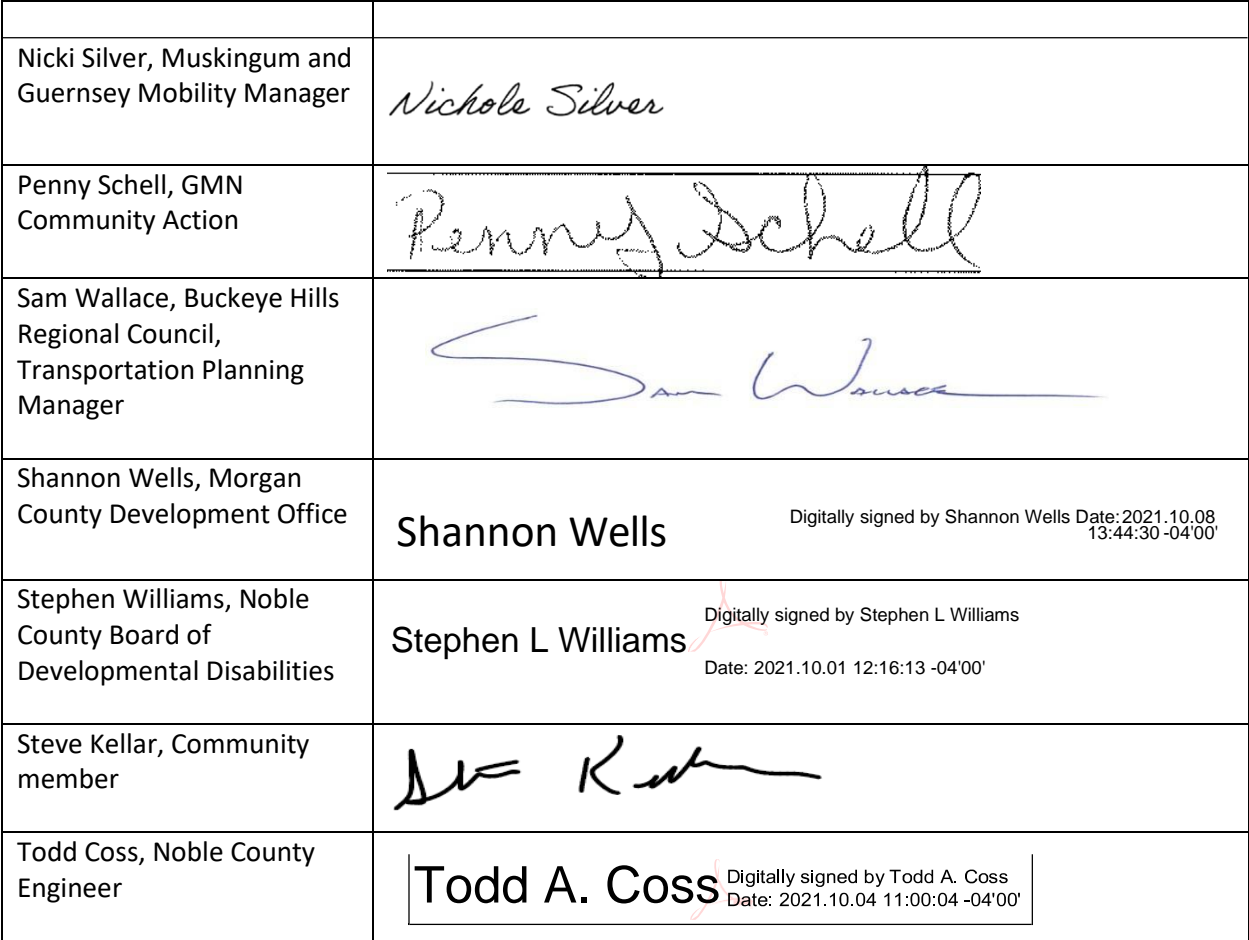 Nicki Silver, Muskingum and
Guernsey Mobility Manager
Nichole Silver
Penny Schell, GMN
Community Action
Penny Schell
Sam Wallace, Buckeye Hills
Regional Council,
Transportation Planning
Manager
Sam Wallace
Shannon Wells, Morgan
County Development Office
Shannon Wells
Digitally signed by Shannon Wells Date:2021.10.08
13:44:30 -04'00'
Stephen Williams, Noble
County Board of
Developmental Disabilities
Stephen L Williams
Digitally signed by Stephen L Williams
Date: 2021.10.01 12:16:13 -04'00'
Steve Kellar, Community
member
Todd Coss, Noble County
Engineer
Todd A. Coss
Digitally signed by Todd A. Coss
Date: 2021.10.04 11:00:04 -04'00'